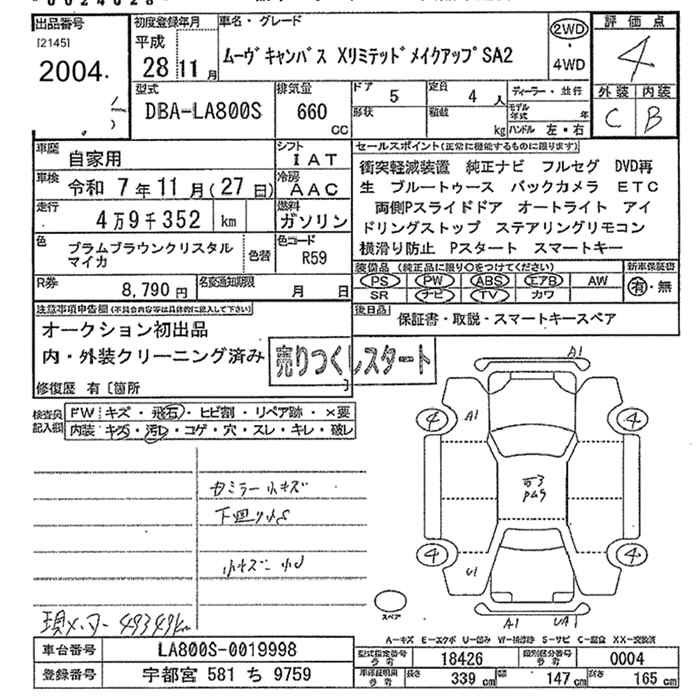 出品番号
[2145]
2004.
初度登録年月
平成
28 11 月
車名・グレード
ムーヴキャンバス XリミテッドメイクアップSA2
2WD
・
4WD
評価点
4
外装 内装
C B
型式
DBA-LA800S
排気量
660
CC
ドア
5
定員
4 人
形状
積載
kg
ディーラー・並行
モデル年式 年
ハンドル 左・右
車歴
自家用
シフト
IAT
車検
令和 7 年 11 月(27 日)
冷房
AAC
走行
4万9千352 km
燃料
ガソリン
色
プラムブラウンクリスタル
マイカ
色替
色コード
R59
R券
8,790 円
名変通知期限
月 日
セールスポイント(正常に機能するものに限ります)
衝突軽減装置 純正ナビ フルセグ DVD再
生 ブルートゥース バックカメラ ETC
両側Pスライドドア オートライト アイ
ドリングストップ ステアリングリモコン
横滑り防止 Pスタート スマートキー
装備品(純正品に限り○をつけてください)
新車保証書
PS PW ABS エアB AW
SR ナビ TV カワ
有・無
後日品
保証書・取説・スマートキースペア
注意事項申告欄(不具合内容等は具体的に記入して下さい)
オークション初出品
内・外装クリーニング済み
売りつくしスタート
修復歴 有〔箇所
検査員
記入欄
FW キズ・飛石・ヒビ割・リペア跡・×要
内装 キズ・汚レ・コゲ・穴・スレ・キレ・破レ
カミラー小キズ
現メーター 49349km
A1
4 4
A1
4 4
U1
スペア
A1 UA1
A-キズ E-エクボ U-凹み W-補修跡 S-サビ C-腐食 XX-交換済
車台番号
LA800S-0019998
登録番号
宇都宮 581 ち 9759
型式指定番号
18426
類別区分番号
0004
長さ 339 cm 幅 147 cm 高さ 165 cm